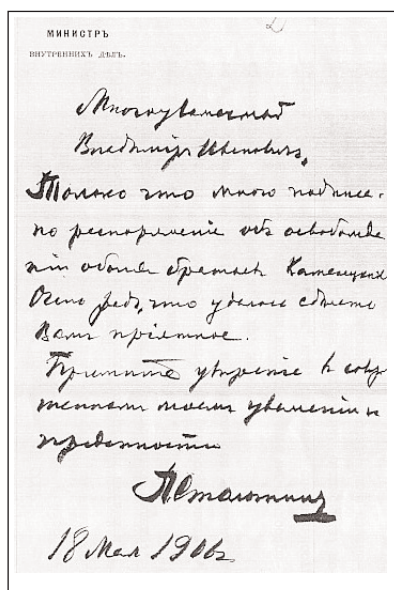 МИНИСТРЪ
ВНУТРЕННИХЪ ДѢЛЪ.
2
Многоуважаемый
Владимiръ Ивановичъ,
Только что мною подписа-
но распоряженiе объ освобожде
нiи обоихъ братьевъ Каменецкихъ
Очень радъ, что удалось сдѣлать
Вамъ прiятное.
Примите увѣренiе въ совер
шенномъ моемъ уваженiи и
преданности
П. Столыпинъ
18 Мая 1906г